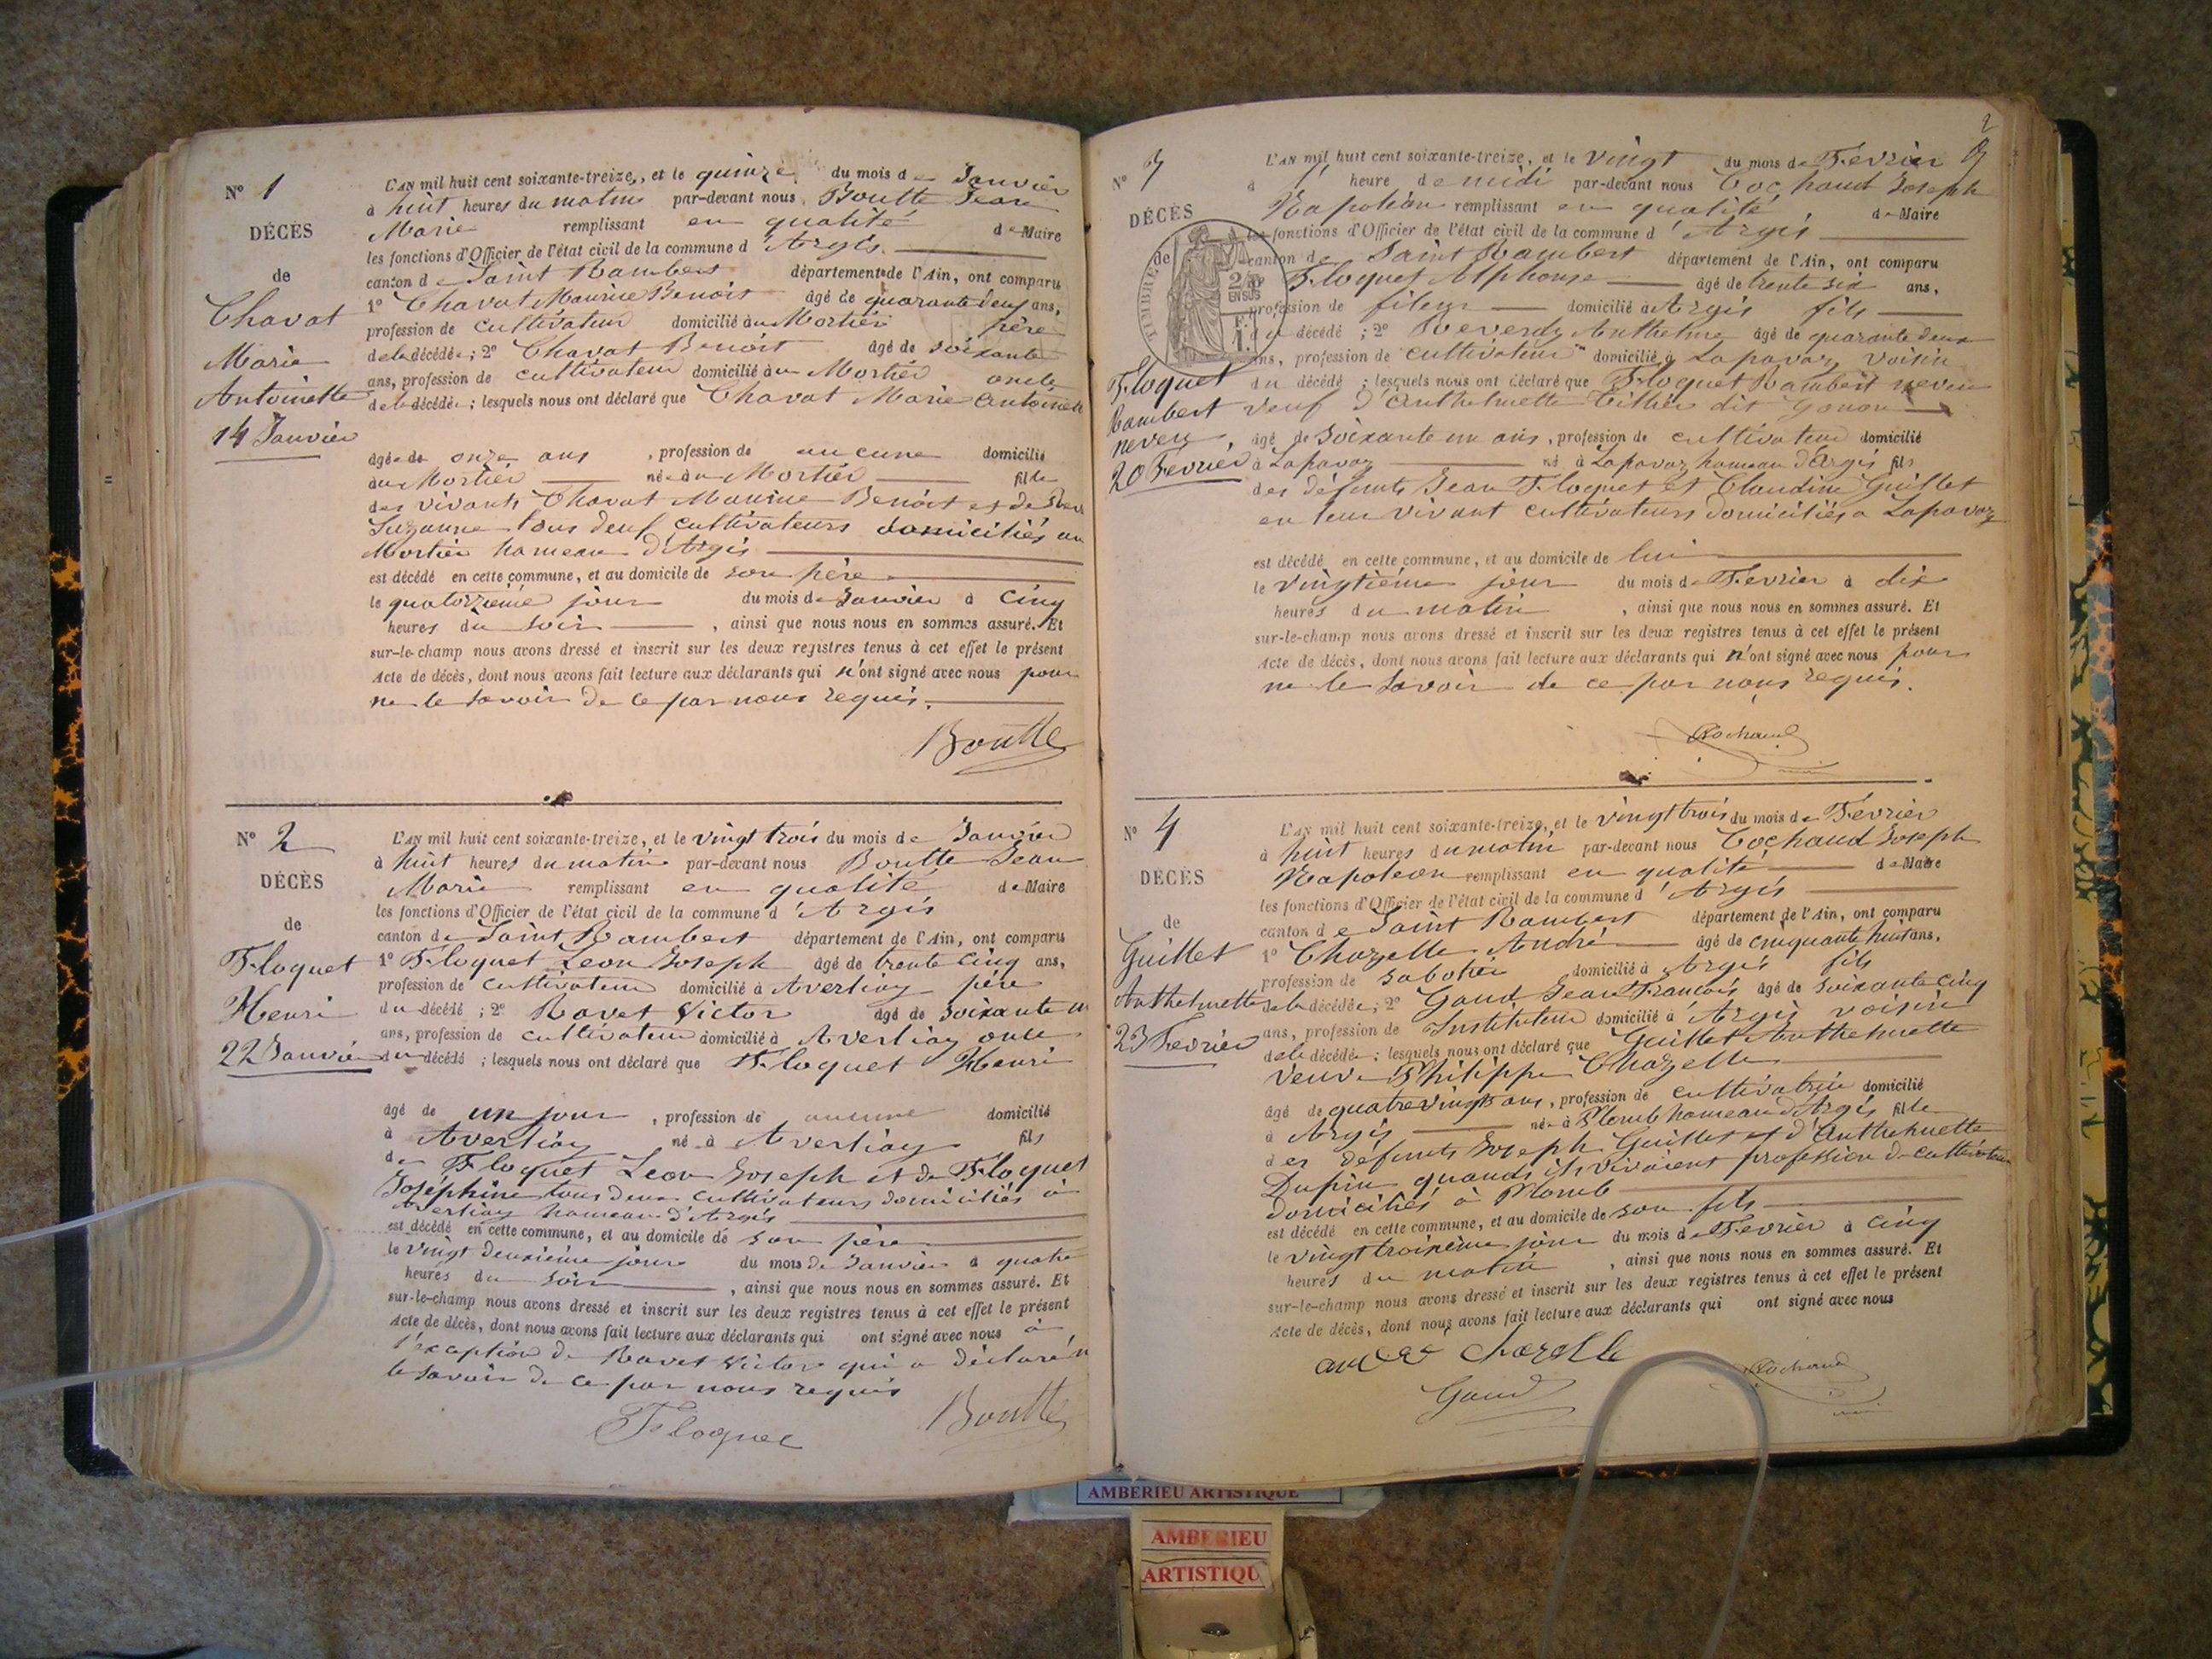 N° 1
DÉCÈS
de
Chavat
Marie
Antoinette
14 Janvier
L'AN mil huit cent soixante-treize, et le quinze du mois de Janvier
à huit heures du matin par-devant nous Boutte Jean
Marie remplissant en qualité de Maire
les fonctions d'Officier de l'état civil de la commune d'Argis
canton de Saint Rambert département de l'Ain, ont comparu
1° Chavat Maurice Benoit âgé de quarante deux ans,
profession de cultivateur domicilié au Mortier père
de la décédée ; 2° Chavat Benoit âgé de soixante
ans, profession de cultivateur domicilié au Mortier oncle
de la décédée ; lesquels nous ont déclaré que Chavat Marie Antoinette
âgée de onze ans , profession de aucune domicilié
au Mortier née au Mortier fille
des vivants Chavat Maurice Benoit et de
Suzanne tous deux cultivateurs domiciliés au
Mortier hameau d'Argis
est décédé en cette commune, et au domicile de son père
le quatorzième jour du mois de Janvier à cinq
heures du soir , ainsi que nous nous en sommes assuré. Et
sur-le-champ nous avons dressé et inscrit sur les deux registres tenus à cet effet le présent
Acte de décès, dont nous avons fait lecture aux déclarants qui n'ont signé avec nous pour
ne le savoir de ce par nous requis.
Boutte
N° 2
DÉCÈS
de
Floquet
Henri
22 Janvier
L'AN mil huit cent soixante-treize, et le vingt trois du mois de Janvier
à huit heures du matin par-devant nous Boutte Jean
Marie remplissant en qualité de Maire
les fonctions d'Officier de l'état civil de la commune d'Argis
canton de Saint Rambert département de l'Ain, ont comparu
1° Floquet Leon Joseph âgé de trente cinq ans,
profession de cultivateur domicilié à Averliay père
du décédé ; 2° Ravet Victor âgé de soixante
ans, profession de cultivateur domicilié à Averliay oncle
du décédé ; lesquels nous ont déclaré que Floquet Henri
âgé de un jour , profession de aucune domicilié
à Averliay né à Averliay fils
de Floquet Leon Joseph et de Floquet
Joséphine tous deux cultivateurs domiciliés à
Averliay hameau d'Argis
est décédé en cette commune, et au domicile de son père
le vingt deuxième jour du mois de Janvier à quatre
heures du soir , ainsi que nous nous en sommes assuré. Et
sur-le-champ nous avons dressé et inscrit sur les deux registres tenus à cet effet le présent
Acte de décès, dont nous avons fait lecture aux déclarants qui ont signé avec nous à
l'exception de Ravet Victor qui a déclaré n
le savoir de ce par nous requis
Floquet Boutte
2
N° 3
DÉCÈS
de
Floquet
Rambert
neveu
20 Fevrier
TIMBRE
2/10 EN SUS
1 F.
L'AN mil huit cent soixante-treize, et le vingt du mois de Février
à 1 heure de midi par-devant nous Cochaud Joseph
Napoléon remplissant en qualité de Maire
les fonctions d'Officier de l'état civil de la commune d'Argis
canton de Saint Rambert département de l'Ain, ont comparu
Floquet Alphonse âgé de trente six ans,
profession de fileur domicilié à Argis fils
du décédé ; 2° Reverdy Anthelme âgé de quarante deux
ans, profession de cultivateur domicilié à Lapavaz voisin
du décédé ; lesquels nous ont déclaré que Floquet Rambert neveu
veuf d'Anthelmette Tillier dit Gonon
âgé de soixante un ans , profession de cultivateur domicilié
à Lapavaz né à Lapavaz hameau d'Argis fils
des défunts Jean Floquet et Claudine Guillet
en leur vivant cultivateurs domiciliés à Lapavaz
est décédé en cette commune, et au domicile de lui
le vingtième jour du mois de Fevrier à dix
heures du matin , ainsi que nous nous en sommes assuré. Et
sur-le-champ nous avons dressé et inscrit sur les deux registres tenus à cet effet le présent
Acte de décès, dont nous avons fait lecture aux déclarants qui n'ont signé avec nous pour
ne le savoir de ce par nous requis.
Cochaud
N° 4
DÉCÈS
de
Guillet
Anthelmette
23 Fevrier
L'AN mil huit cent soixante-treize, et le vingt trois du mois de Février
à huit heures du matin par-devant nous Cochaud Joseph
Napoleon remplissant en qualité de Maire
les fonctions d'Officier de l'état civil de la commune d'Argis
canton de Saint Rambert département de l'Ain, ont comparu
1° Chazelle André âgé de cinquante huit ans,
profession de sabotier domicilié à Argis fils
de la décédée ; 2° Gaud Jean François âgé de soixante cinq
ans, profession de Instituteur domicilié à Argis voisin
de la décédée ; lesquels nous ont déclaré que Guillet Anthelmette
veuve Philippe Chazelle
âgé de quatre vingts ans , profession de cultivatrice domicilié
à Argis née à Plomb hameau d'Argis fille
des défunts Joseph Guillet et d'Anthelmette
Dupin quands ils vivaient profession de cultivateurs
domiciliés à Plomb
est décédé en cette commune, et au domicile de son fils
le vingt troisième jour du mois de Fevrier à cinq
heures du matin , ainsi que nous nous en sommes assuré. Et
sur-le-champ nous avons dressé et inscrit sur les deux registres tenus à cet effet le présent
Acte de décès, dont nous avons fait lecture aux déclarants qui ont signé avec nous
Chazelle
Gaud Cochaud
AMBERIEU ARTISTIQUE
AMBERIEU
ARTISTIQU